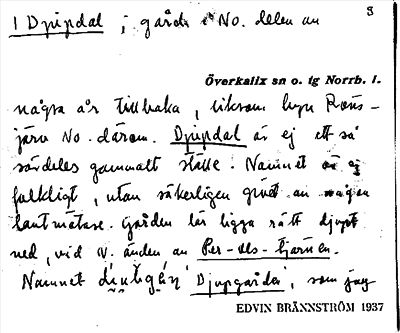 1 Djupdal ; gård i No. delen av
3
Överkalix sn o. tg Norrb. l.
några år tillbaka, liksom byn Räns-
järv No. därom. Djupdal är ej ett så
särdeles gammalt ställe. Namnet är ej
folkligt, utan säkerligen givet av någon
lantmätare. Gården lär ligga rätt djupt
ned, vid N. änden av Per-Ols-tjärnen.
Namnet 'Djupgården', som jag
EDVIN BRÄNNSTRÖM 1937